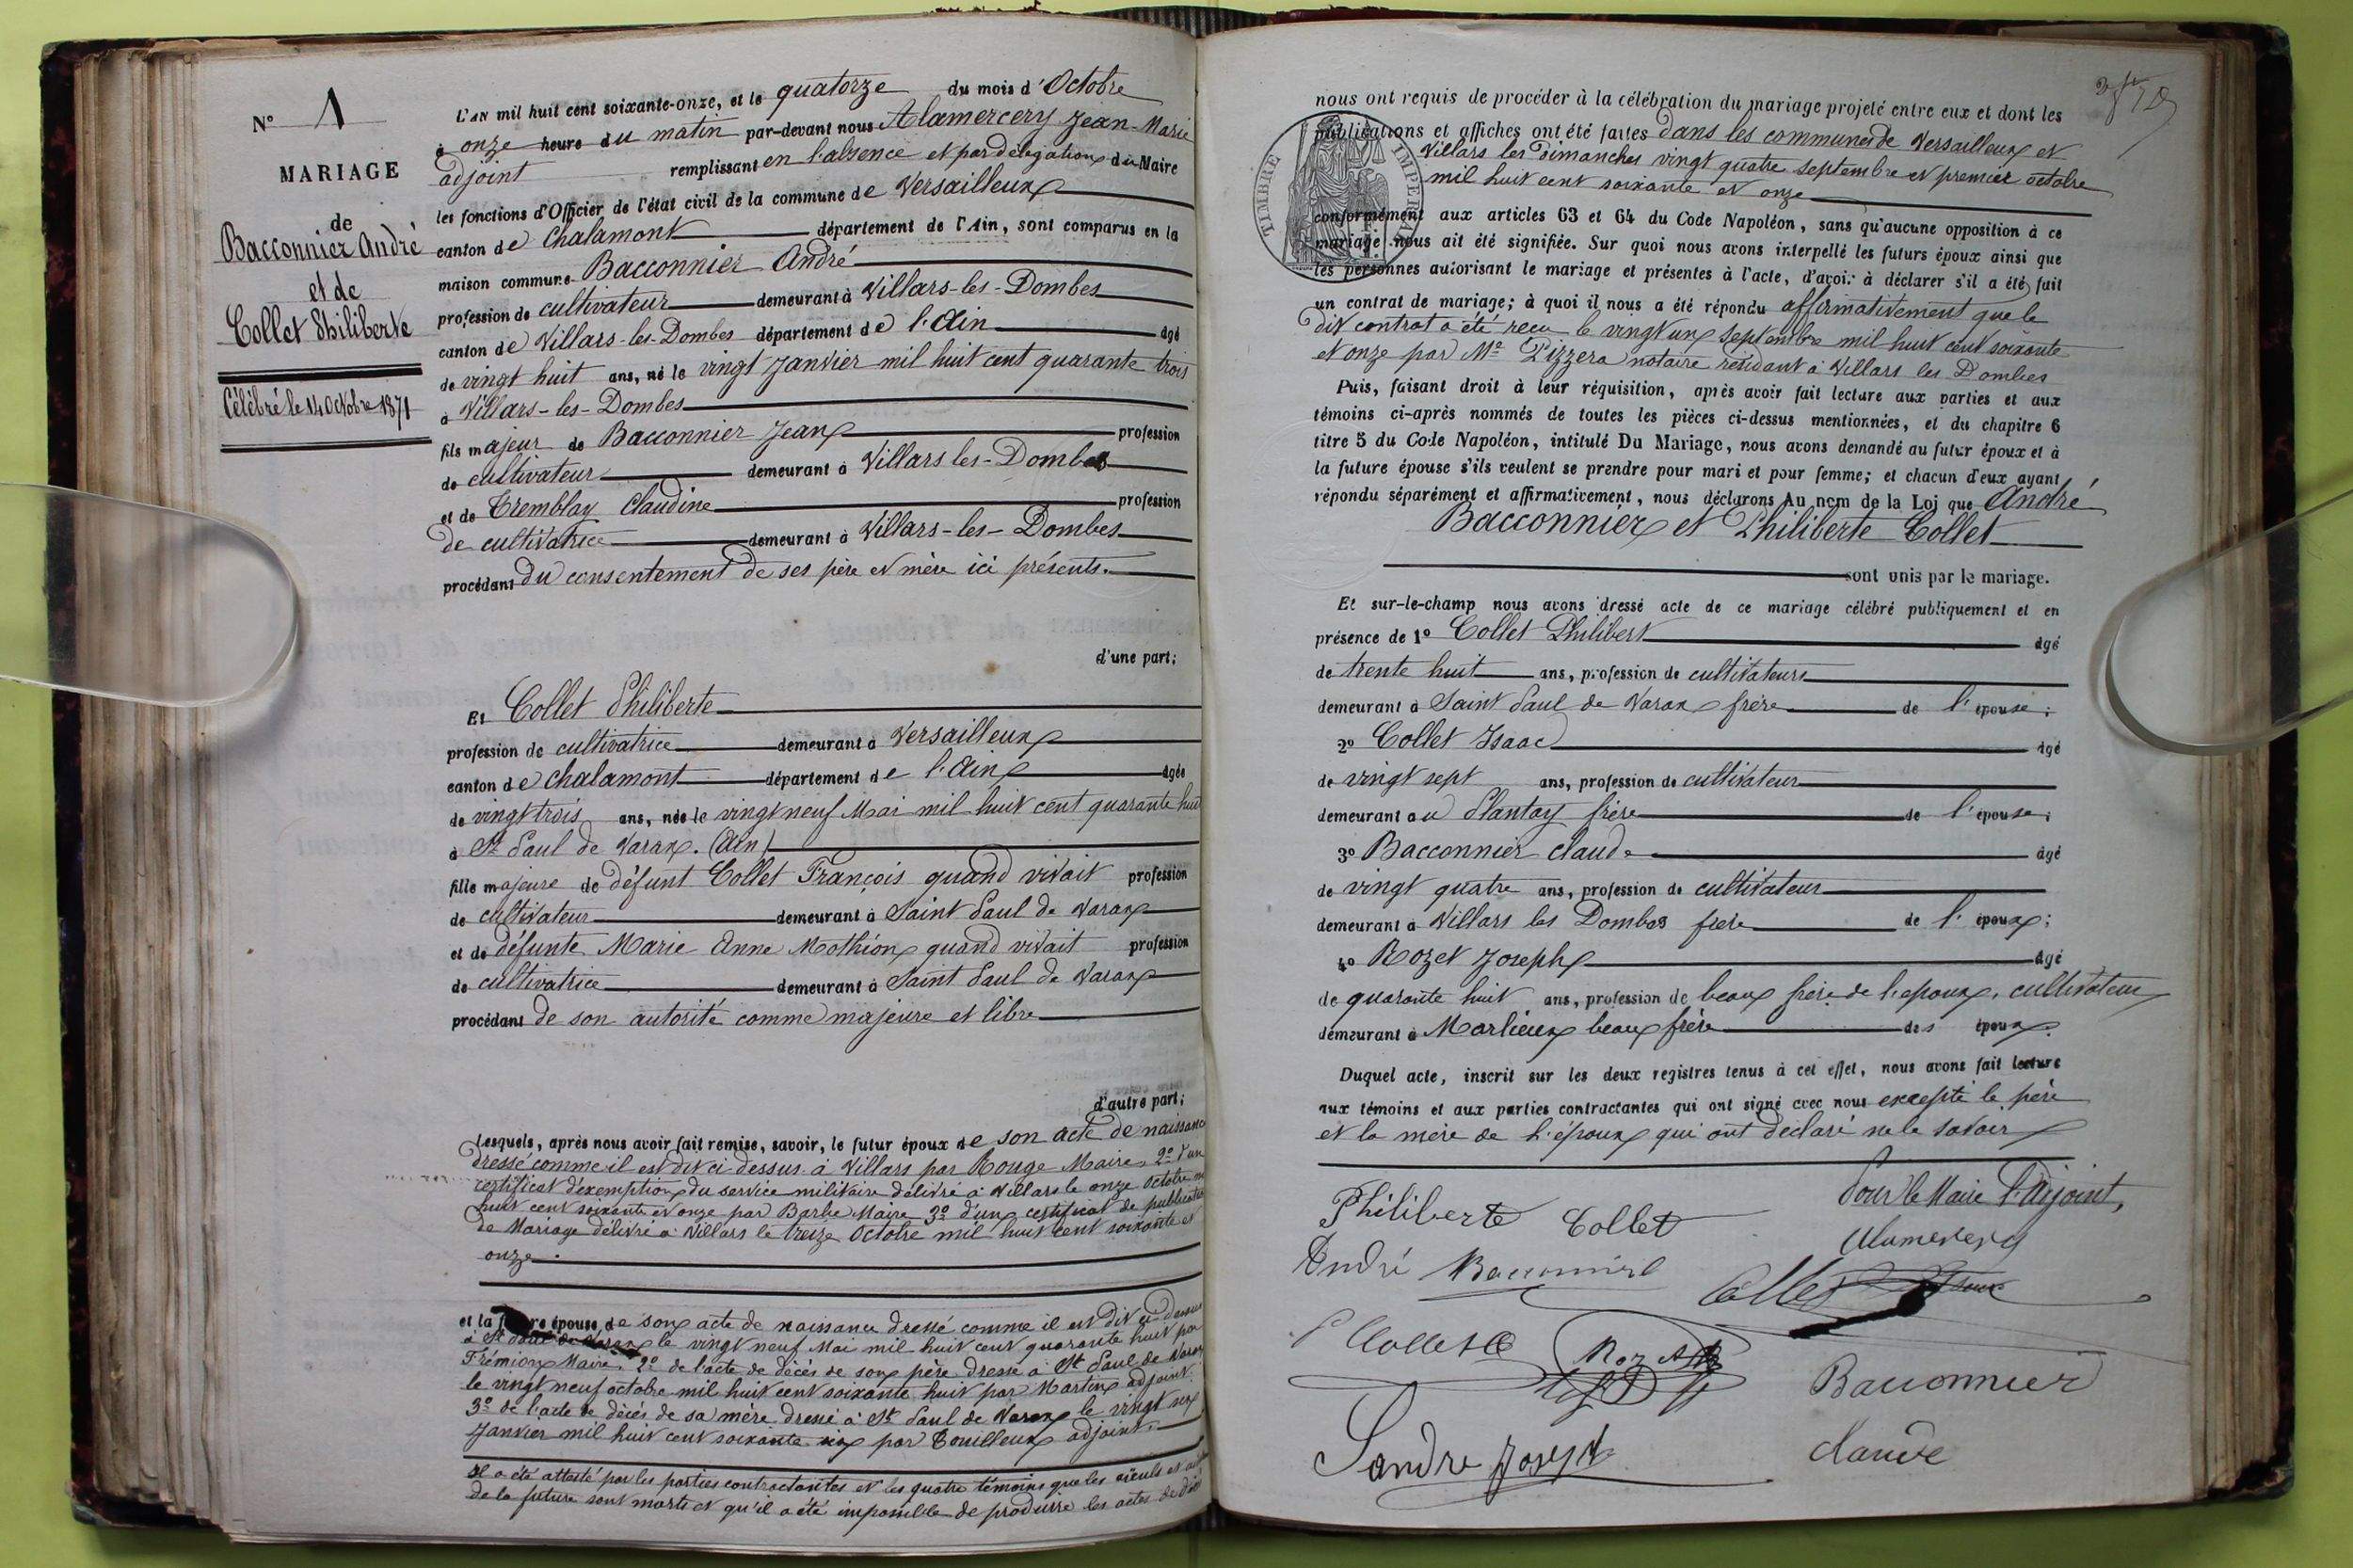 N° 1
MARIAGE
de
Bacconnier André
et de
Collet Philiberte
Célébré le 14 Octobre 1871
L'AN mil huit cent soixante-onze, et le quatorze du mois d'Octobre
à onze heure du matin par-devant nous Alamercery Jean-Marie
adjoint remplissant en l'absence et par délégation du Maire
les fonctions d'Officier de l'état civil de la commune de Versailleux
canton de Chalamont département de l'Ain, sont comparus en la
maison commune Bacconnier André
profession de cultivateur demeurant à Villars-les-Dombes
canton de Villars-les-Dombes département de l'Ain âgé
de vingt huit ans, né le vingt Janvier mil huit cent quarante trois
à Villars-les-Dombes
fils majeur de Bacconnier Jean profession
de cultivateur demeurant à Villars les-Dombes
et de Tremblay Claudine profession
de cultivatrice demeurant à Villars-les-Dombes
procédant du consentement de ses père et mère ici présents.
d'une part;
Et Collet Philiberte
profession de cultivatrice demeurant à Versailleux
canton de Chalamont département de l'Ain âgée
de vingt trois ans, née le vingt neuf Mai mil huit cent quarante huit
à St Paul de Varax. (Ain)
fille majeure de défunt Collet François quand vivait profession
de cultivateur demeurant à Saint Paul de Varax
et de défunte Marie Anne Mothion quand vivait profession
de cultivatrice demeurant à Saint Paul de Varax
procédant de son autorité comme majeure et libre
d'autre part;
Lesquels, après nous avoir fait remise, savoir, le futur époux de son acte de naissance
dressé comme il est dit ci dessus à Villars par Rouge Maire, 2° d'un
certificat d'exemption du service militaire délivré à Villars le onze Octobre mil
huit cent soixante et onze par Barbe Maire 3° d'un certificat de publication
de Mariage délivré à Villars le treize Octobre mil huit cent soixante et
onze.
et la future épouse de son acte de naissance dressé comme il est dit ci-dessus
à St Paul de Varax le vingt neuf Mai mil huit cent quarante huit par
Frémion Maire, 2° de l'acte de décès de son père dressé à St Paul de Varax
le vingt neuf octobre mil huit cent soixante huit par Martin adjoint.
3° de l'acte de décès de sa mère dressé à St Paul de Varax le vingt six
Janvier mil huit cent soixante six par Touilleux adjoint.
Il a été attesté par les parties contractantes et les quatre témoins que les aïeuls et
de la future sont morts et qu'il a été impossible de produire les actes de décès
nous ont requis de procéder à la célébration du mariage projeté entre eux et dont les
publications et affiches ont été faites dans les communes de Versailleux et
Villars les Dimanches vingt quatre septembre et premier octobre
mil huit cent soixante et onze
TIMBRE IMPERIAL
conformément aux articles 63 et 64 du Code Napoléon, sans qu'aucune opposition à ce
mariage nous ait été signifiée. Sur quoi nous avons interpellé les futurs époux ainsi que
les personnes autorisant le mariage et présentes à l'acte, d'avoir à déclarer s'il a été fait
un contrat de mariage; à quoi il nous a été répondu affirmativement que le
dit contrat a été reçu le vingt un Septembre mil huit cent soixante
et onze par Me Pizzera notaire résidant à Villars les Dombes
Puis, faisant droit à leur réquisition, après avoir fait lecture aux parties et aux
témoins ci-après nommés de toutes les pièces ci-dessus mentionnées, et du chapitre 6
titre 5 du Code Napoléon, intitulé Du Mariage, nous avons demandé au futur époux et à
la future épouse s'ils veulent se prendre pour mari et pour femme; et chacun d'eux ayant
répondu séparément et affirmativement, nous déclarons Au nom de la Loi que André
Bacconnier et Philiberte Collet
sont unis par le mariage.
Et sur-le-champ nous avons dressé acte de ce mariage célébré publiquement et en
présence de 1° Collet Philibert âgé
de trente huit ans, profession de cultivateurs
demeurant à Saint Paul de Varax frère de l'épouse;
2° Collet Isaac âgé
de vingt sept ans, profession de cultivateur
demeurant au Plantay frère de l'épouse;
3° Bacconnier Claude âgé
de vingt quatre ans, profession de cultivateur
demeurant à Villars les Dombes frère de l'époux;
4° Rozet Joseph âgé
de quarante huit ans, profession de beau frère de l'époux, cultivateur
demeurant à Marlieux beau frère des époux.
Duquel acte, inscrit sur les deux registres tenus à cet effet, nous avons fait lecture
aux témoins et aux parties contractantes qui ont signé avec nous excepté le père
et la mère de l'époux qui ont déclaré ne le savoir
Philiberte Collet
Pour le Maire l'Adjoint,
Alamercery
André Bacconnier
Collet Isaac
P Collet
Rozet
Bacconnier
Claude
Sandre Joseph